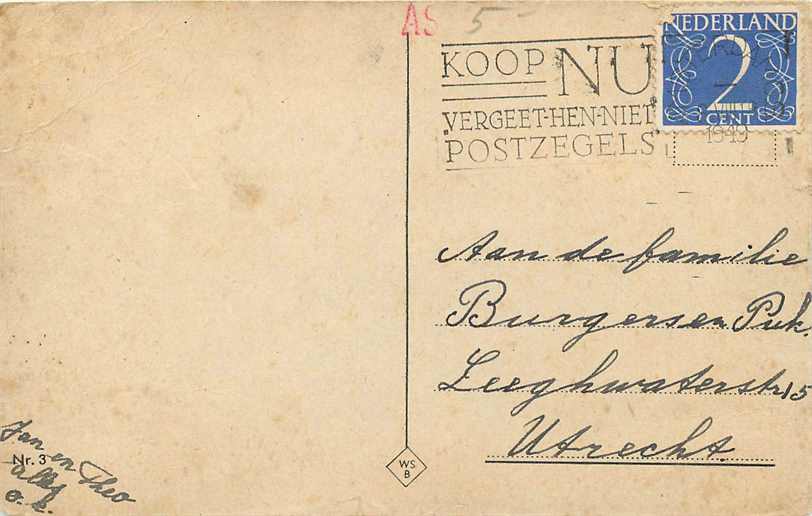 AS 5
NEDERLAND
2
CENT
KOOP NU
VERGEET-HEN-NIET
POSTZEGELS
1949
Aan de familie
Burgersen Puk.
Leeghwaterstr 15
Utrecht.
Jan en Theo
Nr. 3
Alles
o.k.
WS
B